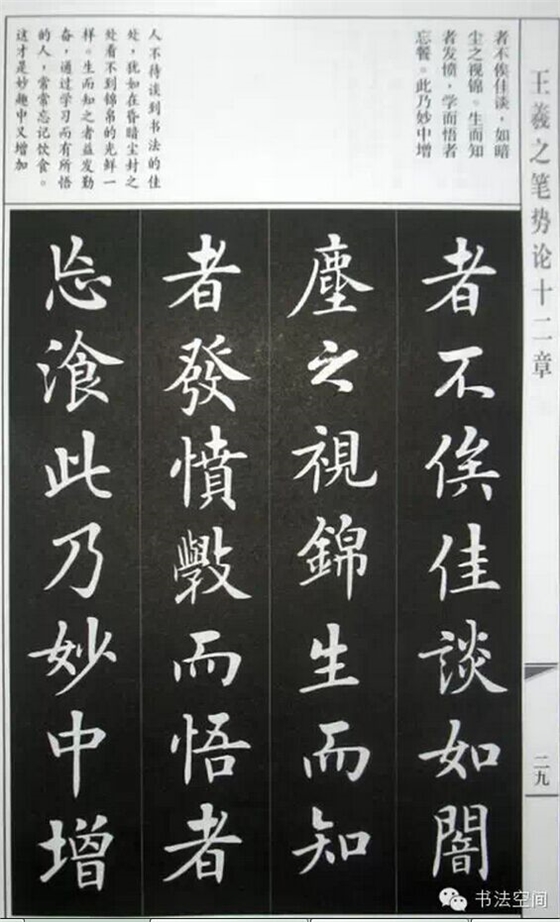 王羲之笔势论十二章
者不俟佳谈，如暗
尘之视锦。生而知
者发愤，学而悟者
忘餐。此乃妙中增
人不待谈到书法的佳
处，犹如在昏暗尘封之
处看不到锦帛的光鲜一
样。生而知之者益发勤
奋，通过学习而有所悟
的人，常常忘记饮食。
这才是妙趣中又增加
者不俟佳談如闇
塵之視錦生而知
者發憤斆而悟者
忘飡此乃妙中增
二九
书法空间